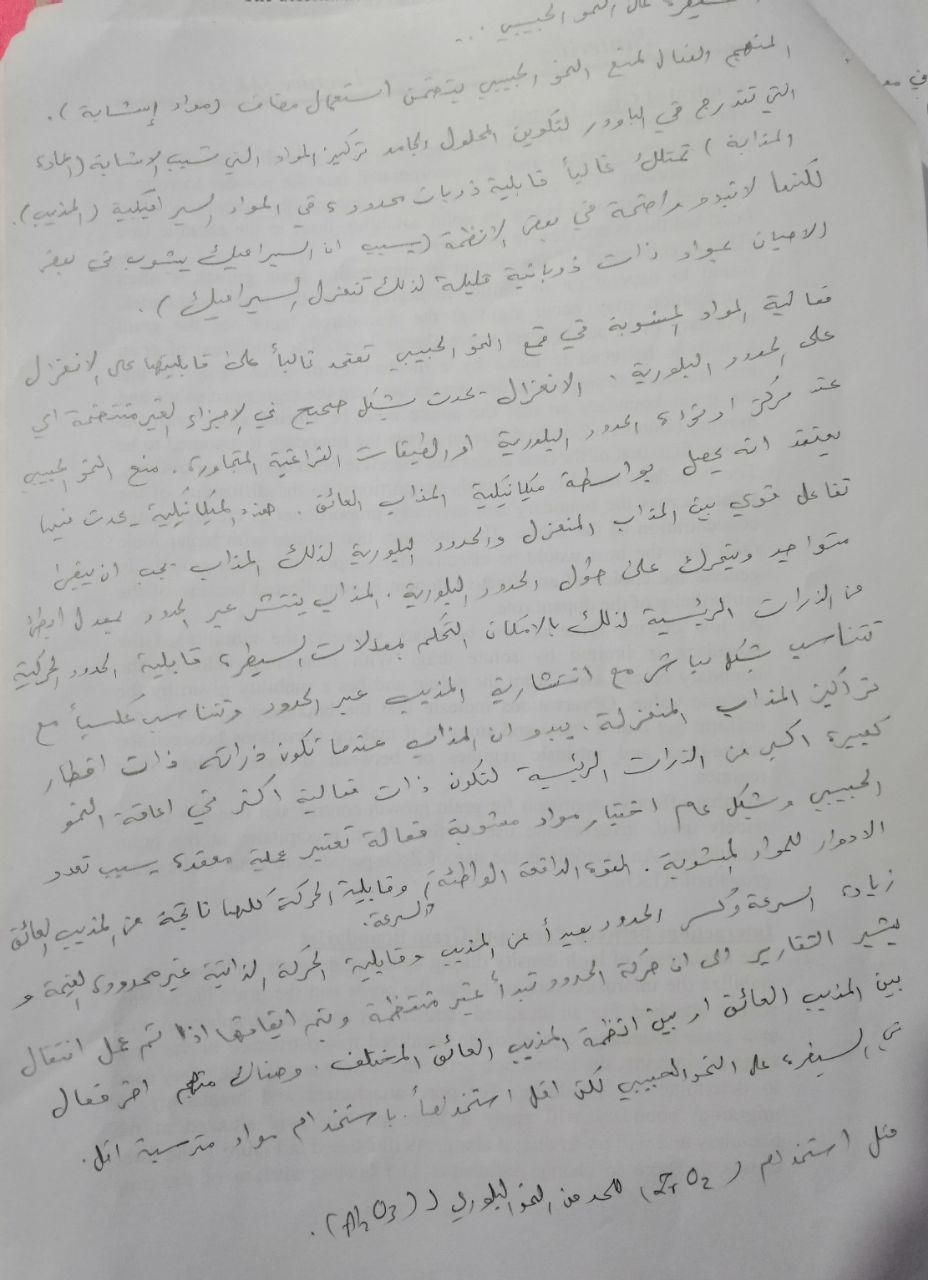 السيطرة على النمو الحبيبي ...
المنهج والفعال لمنع النمو الحبيبي يتضمن استعمال مضاف (مواد إشابة).
التي تندرج في الباودر لتكوين المحلول الجامد تركيز المواد التي تسبب الاشابة (المادة
المذابة) تمتلك غالباً قابلية ذوبان محدودة في المواد السيراميكية (المذيب).
لكنها لاتبدو واضحة في بعض الانظمة (بسبب ان السيراميك يشوب في بعض
الاحيان بمواد ذات ذوبانية قليلة لذلك تنعزل السيراميك).
فعالية المواد المشوبة في قمع النمو الحبيبي تعتمد غالباً على قابليتها على الانعزال
على الحدود البلورية. الانعزال يحدث بشكل صحيح في الاجزاء الغير منتظمة اي
عند مركز او نواة الحدود البلورية او الطبقات الفراغية المتجاورة. منع النمو الحبيبي
يعتقد انه يحصل بواسطة ميكانيكية المذاب العائق. هذه الميكانيكية يحدث فيها
تفاعل قوي بين المذاب المنعزل والحدود البلورية لذلك المذاب يجب ان يبقى
متواجد ويتحرك على طول الحدود البلورية. المذاب ينتشر عبر الحدود بمعدل ابطئ
من الذرات الرئيسية لذلك بالامكان التحكم بمعدلات السيطرة قابلية الحدود الحركية
تتناسب بشكل مباشر مع انتشارية المذيب عبر الحدود وتتناسب عكسياً مع
تراكيز المذاب المنعزلة. يبدو ان المذاب عندما تكون ذراته ذات اقطار
كبيرة اكبر من الذرات الرئيسية لتكون ذات فعالية اكثر في اعاقة النمو
الحبيبي وبشكل عام اختيار مواد مشوبة فعالة تعتبر عملية معقدة بسبب تعدد
الادوار للمواد المشوبة. القوة الدافعة الواطئة وقابلية الحركة كلاهما ناتجة عن المذيب العائق
والسرعة.
زيادة السرعة وكسر الحدود بعيداً عن المذيب وقابلية الحركة الذاتية غير محدودة القيمة و
يشير التقارير الى ان حركة الحدود تبدأ غير منتظمة ويتم ايقافها اذا تم عمل انتقال
بين المذيب العائق او بين انظمة المذيب العائق المختلف. وهناك منهج اخر فعال
في السيطرة على النمو الحبيبي لكن اقل استخداماً. باستخدام مواد مترسبة اقل.
مثل استخدام (ZrO2) للحد من النمو البلوري لـ (Al2O3).